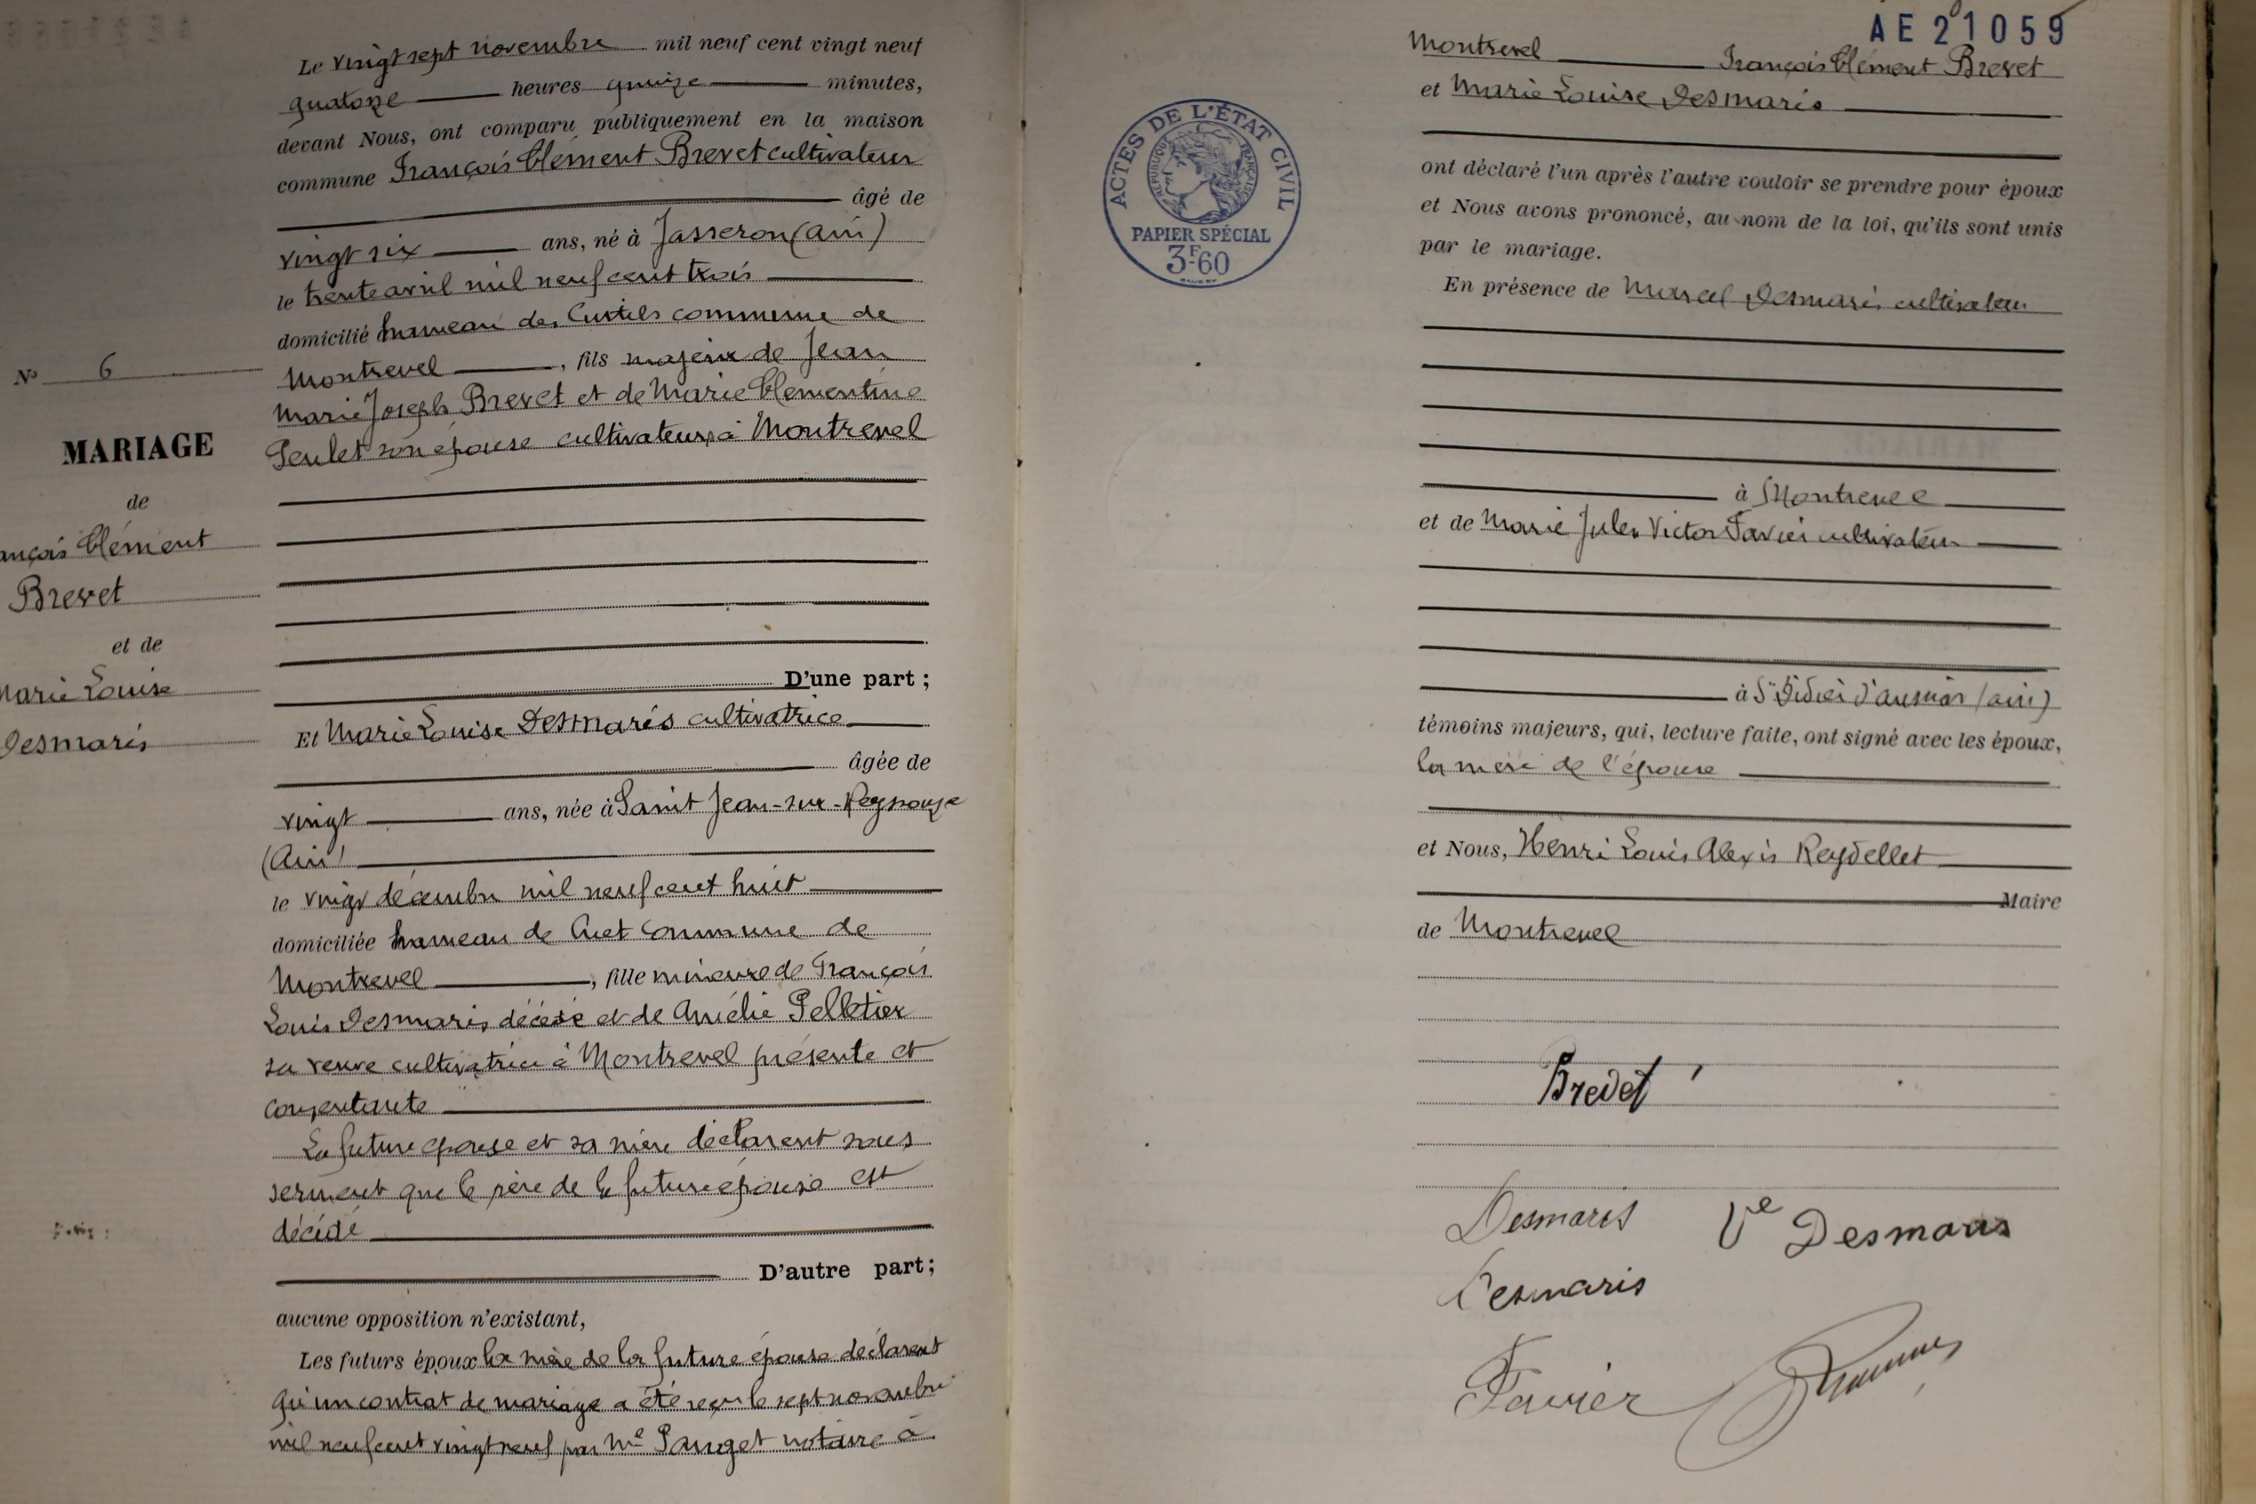 Le vingt sept novembre mil neuf cent vingt neuf
quatorze heures quinze minutes,
devant Nous, ont comparu publiquement en la maison
commune François Clément Brevet cultivateur
âgé de
vingt six ans, né à Jasseron (ain)
le trente avril mil neuf cent trois
domicilié hameau des Curtils commune de
Montrevel, fils majeur de Jean
Marie Joseph Brevet et de Marie Clémentine
Peulet son épouse cultivateurs à Montrevel
D'une part;
Et Marie Louise Desmaris cultivatrice
âgée de
vingt ans, née à Saint Jean-sur-Reyssouze
(Ain)
le vingt décembre mil neuf cent huit
domiciliée hameau de Cuet commune de
Montrevel, fille mineure de François
Louis Desmaris décédé et de Amélie Pelletier
sa veuve cultivatrice à Montrevel présente et
consentante
La future épouse et sa mère déclarent sous
serment que le père de la future épouse est
décédé
D'autre part;
aucune opposition n'existant,
Les futurs époux la mère de la future épouse déclarent
qu'un contrat de mariage a été reçu le sept novembre
mil neuf cent vingt neuf par Me Pauget notaire à
No 6
MARIAGE
de
ançois Clément
Brevet
et de
Marie Louise
Desmaris
ACTES DE L'ÉTAT CIVIL
RÉPUBLIQUE FRANÇAISE
PAPIER SPÉCIAL
3F60
AE21059
Montrevel François Clément Brevet
et Marie Louise Desmaris
ont déclaré l'un après l'autre vouloir se prendre pour époux
et Nous avons prononcé, au nom de la loi, qu'ils sont unis
par le mariage.
En présence de Marcel Desmaris cultivateur
à Montrevel
et de Marie Jules Victor Favier cultivateur
à St Didier d'aussiat (ain)
témoins majeurs, qui, lecture faite, ont signé avec les époux,
la mère de l'épouse
et Nous, Henri Louis Alexis Reydellet
Maire
de Montrevel
Brevet
Desmaris Ve Desmaris
Desmaris
Favier